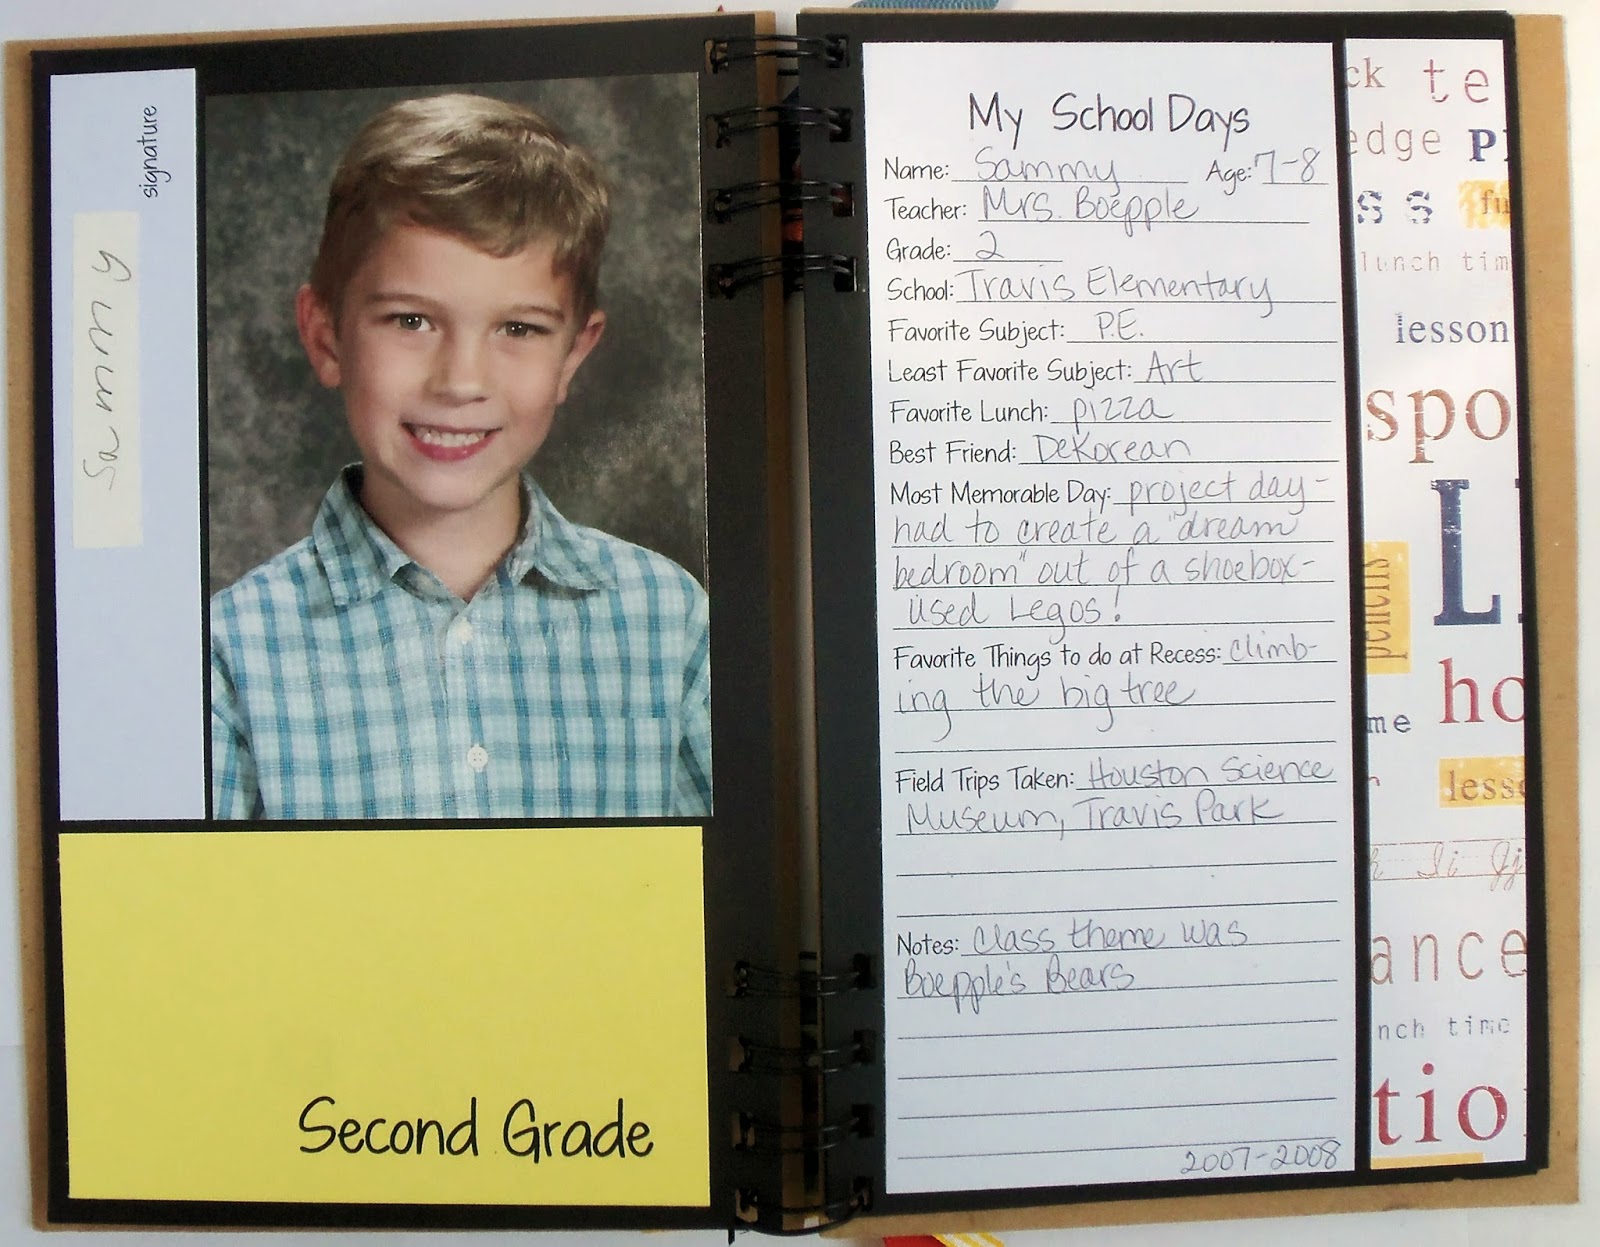 signature
Sammy
Second Grade
My School Days
Name: Sammy Age: 7-8
Teacher: Mrs. Boepple
Grade: 2
School: Travis Elementary
Favorite Subject: P.E.
Least Favorite Subject: Art
Favorite Lunch: pizza
Best Friend: DeKorean
Most Memorable Day: project day-
had to create a "dream
bedroom" out of a shoebox-
used Legos!
Favorite Things to do at Recess: climb-
ing the big tree
Field Trips Taken: Houston Science
Museum, Travis Park
Notes: Class theme was
Boepple's Bears
2007-2008
ck te
edge P
ss fu
lunch tim
lesson
spo
L
pencils
ho
me
lesso
Ii Jj
ance
nch time
tio